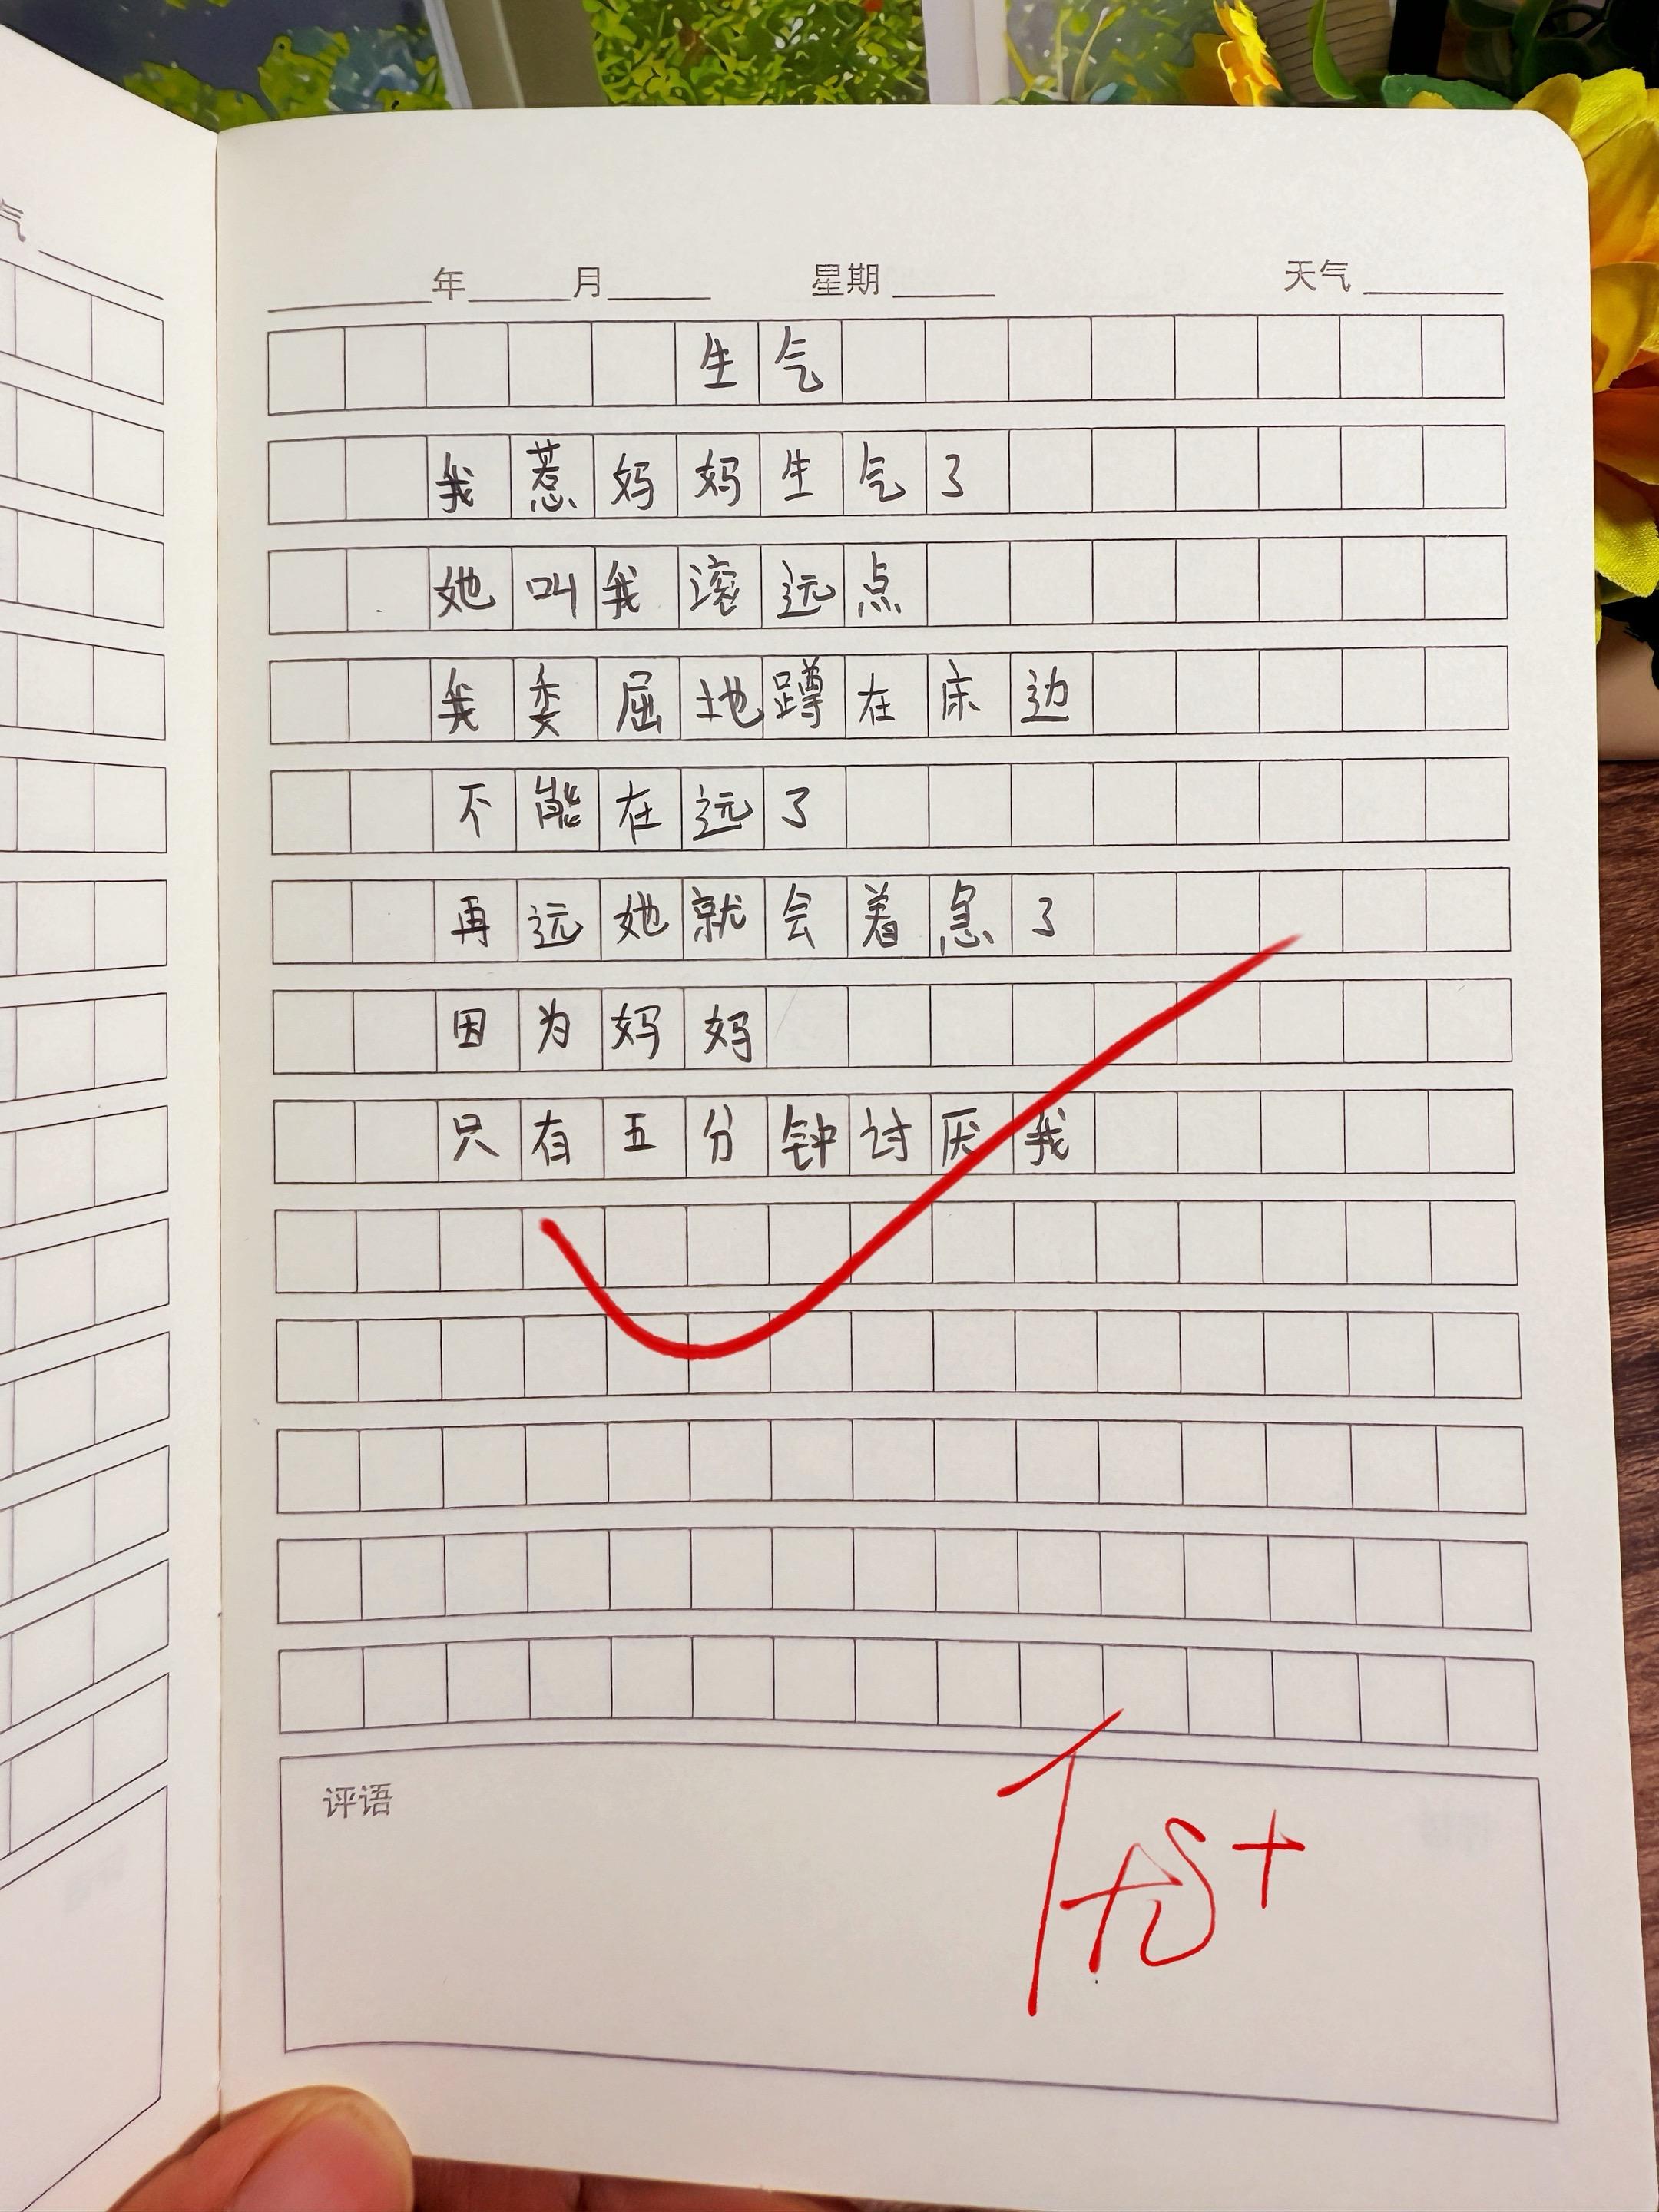 气
年 月 星期 天气
生气
我惹妈妈生气了
她叫我滚远点
我委屈地蹲在床边
不能在远了
再远她就会着急了
因为妈妈
只有五分钟讨厌我
评语